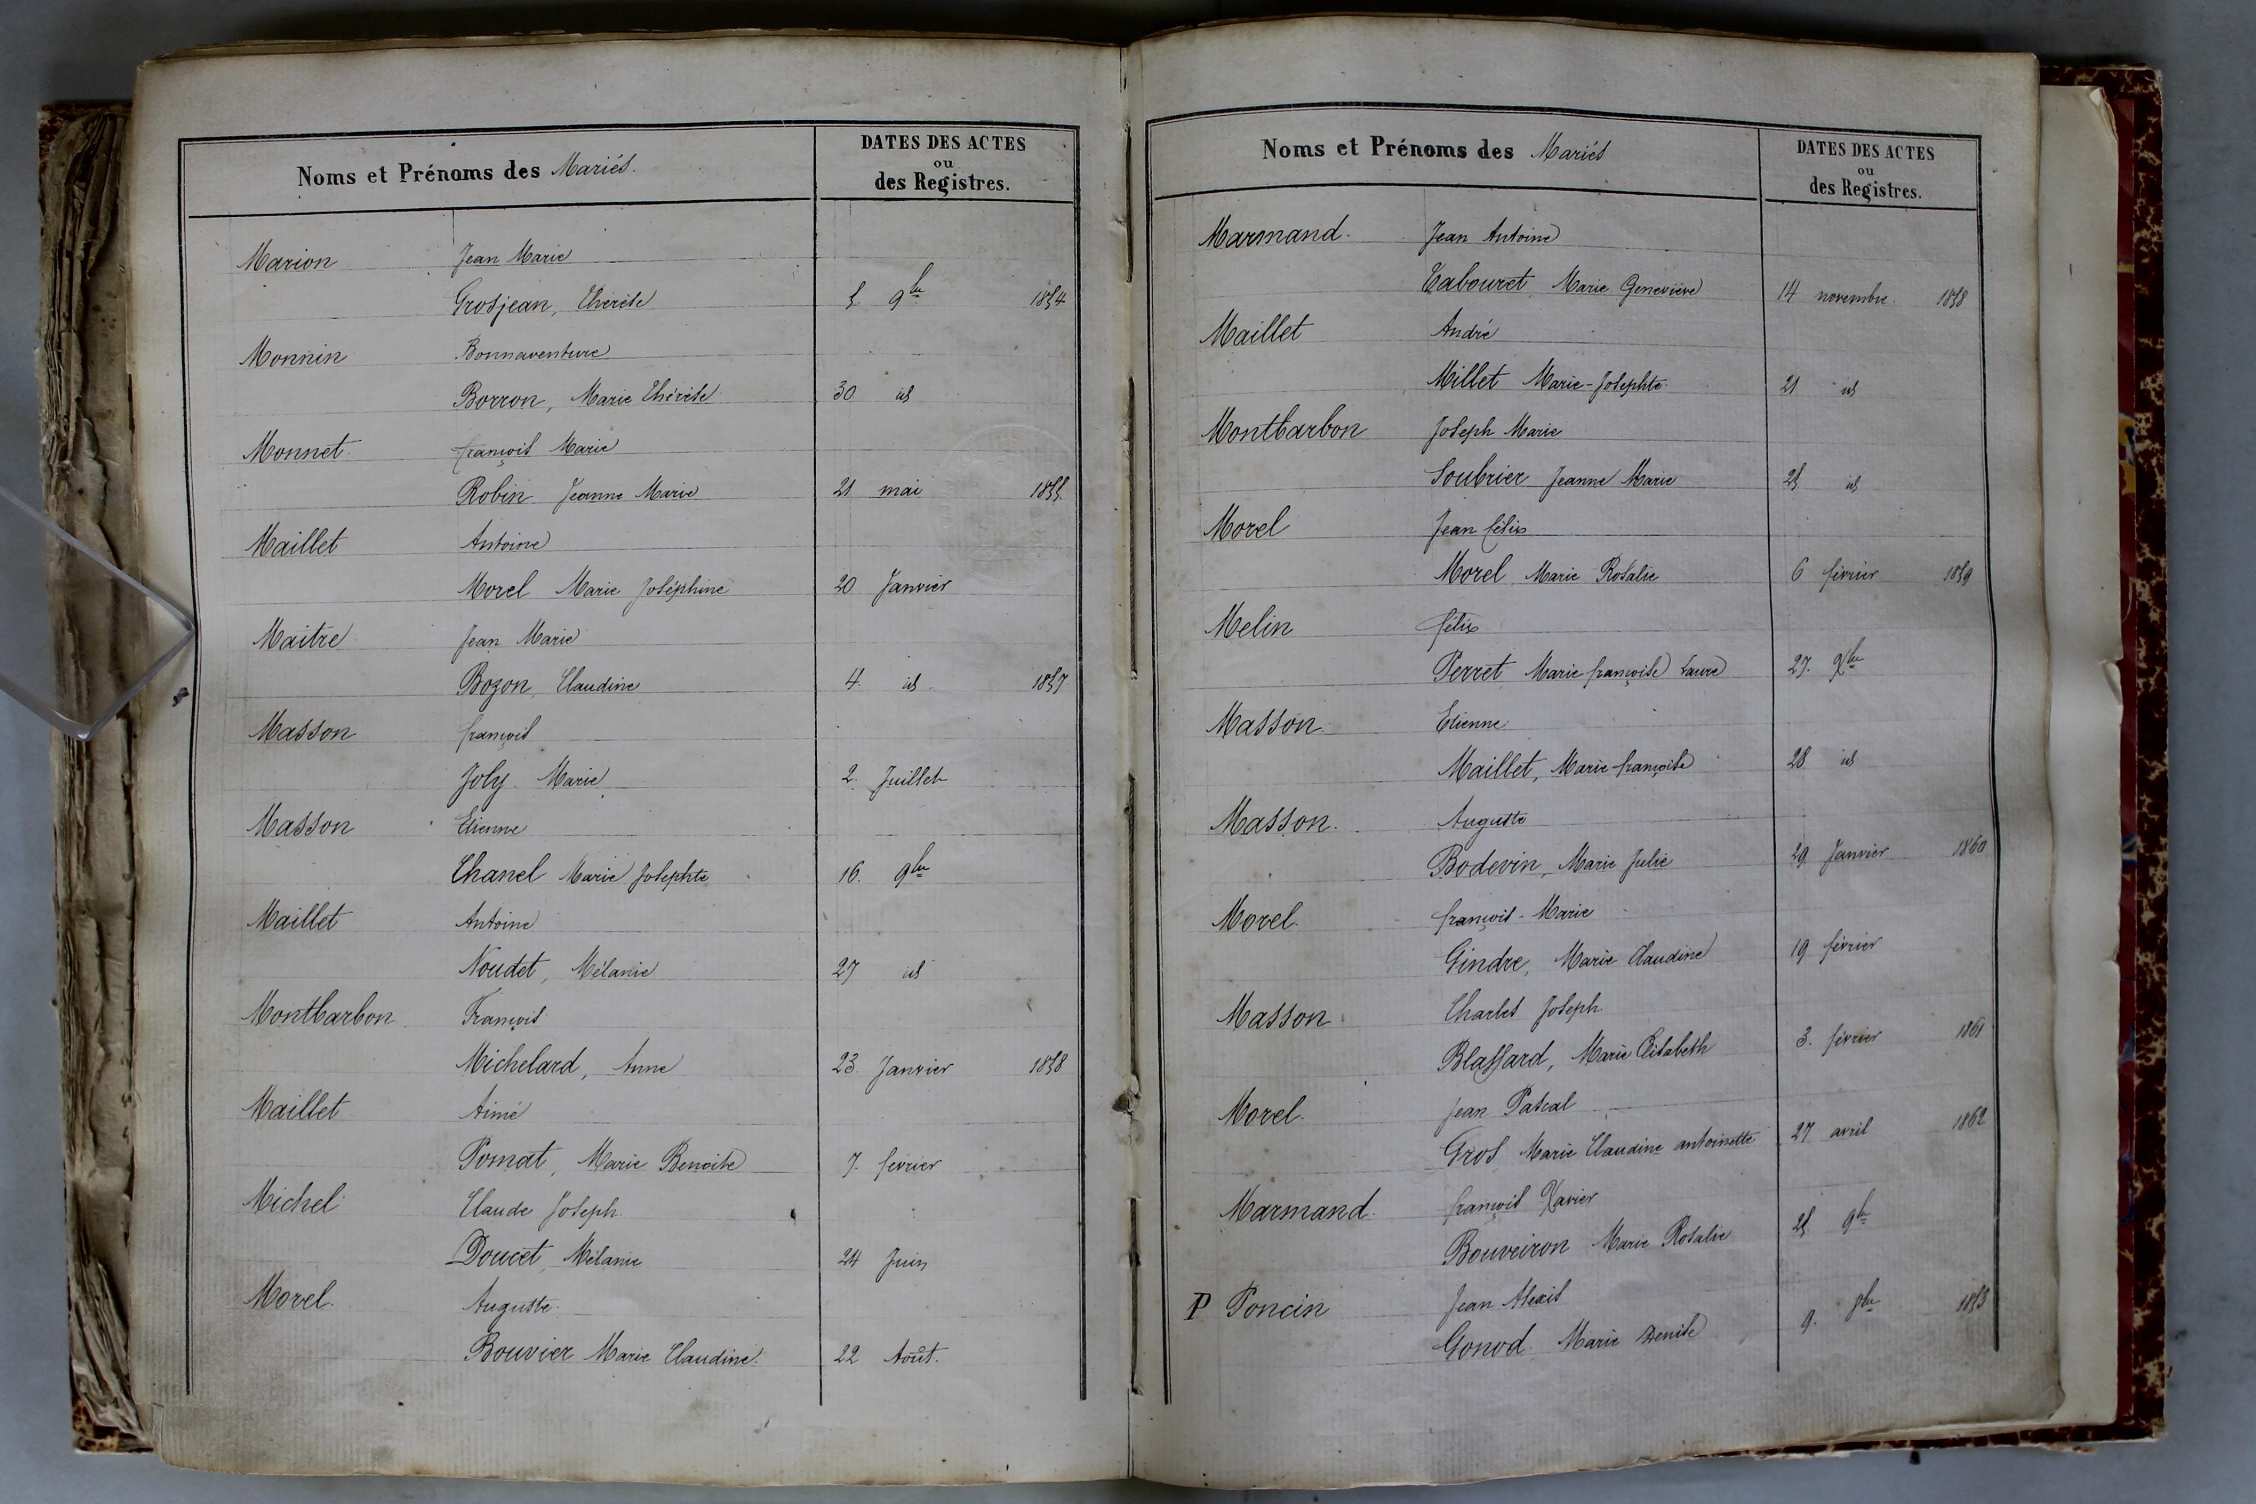 Noms et Prénoms des Mariés.
DATES DES ACTES
ou
des Registres.
Marion Jean Marie
Grosjean, Thérèse 5 9bre 1854
Monnin Bonnaventure
Borron, Marie Thérèse 30 id
Monnet françois Marie
Robin Jeanne Marie 21 mai 1855
Maillet Antoine
Morel Marie Joséphine 20 Janvier
Maitre Jean Marie
Bozon, Claudine 4 id 1857
Masson françois
Joly Marie 2. Juillet
Masson Etienne
Chanel Marie Josephte 16. 9bre
Maillet Antoine
Noudet, Mélanie 27 id
Montbarbon François
Michelard, Anne 23. Janvier 1858
Maillet Aimé
Pomat, Marie Benoite 7. février
Michel Claude Joseph
Doucet, Mélanie 24 Juin
Morel Auguste
Bouvier Marie Claudine. 22 Août.
Noms et Prénoms des Mariés
DATES DES ACTES
ou
des Registres.
Marmand. Jean Antoine
Tabouret Marie Geneviève 14 novembre. 1858
Maillet André
Millet Marie-Josephte 21 id
Montbarbon Joseph Marie
Soubrier Jeanne Marie 25 id
Morel Jean félix
Morel Marie Rosalie 6 février 1859
Melin félix
Perret Marie françoise Laure 27. Xbre
Masson Etienne
Maillet, Marie françoise 28 id
Masson. Auguste
Bodevin, Marie Julie 29 Janvier 1860
Morel françois-Marie
Gindre, Marie Claudine 19 février
Masson Charles Joseph
Blassard, Marie Elisabeth 3. février 1861
Morel. Jean Pascal
Gros Marie Claudine antoinette 27 avril 1862
Marmand. françois Xavier
Bouveiron Marie Rosalie 25 9bre
P Poncin Jean Alexis
Gonod Marie Denise 9. 7bre 1853